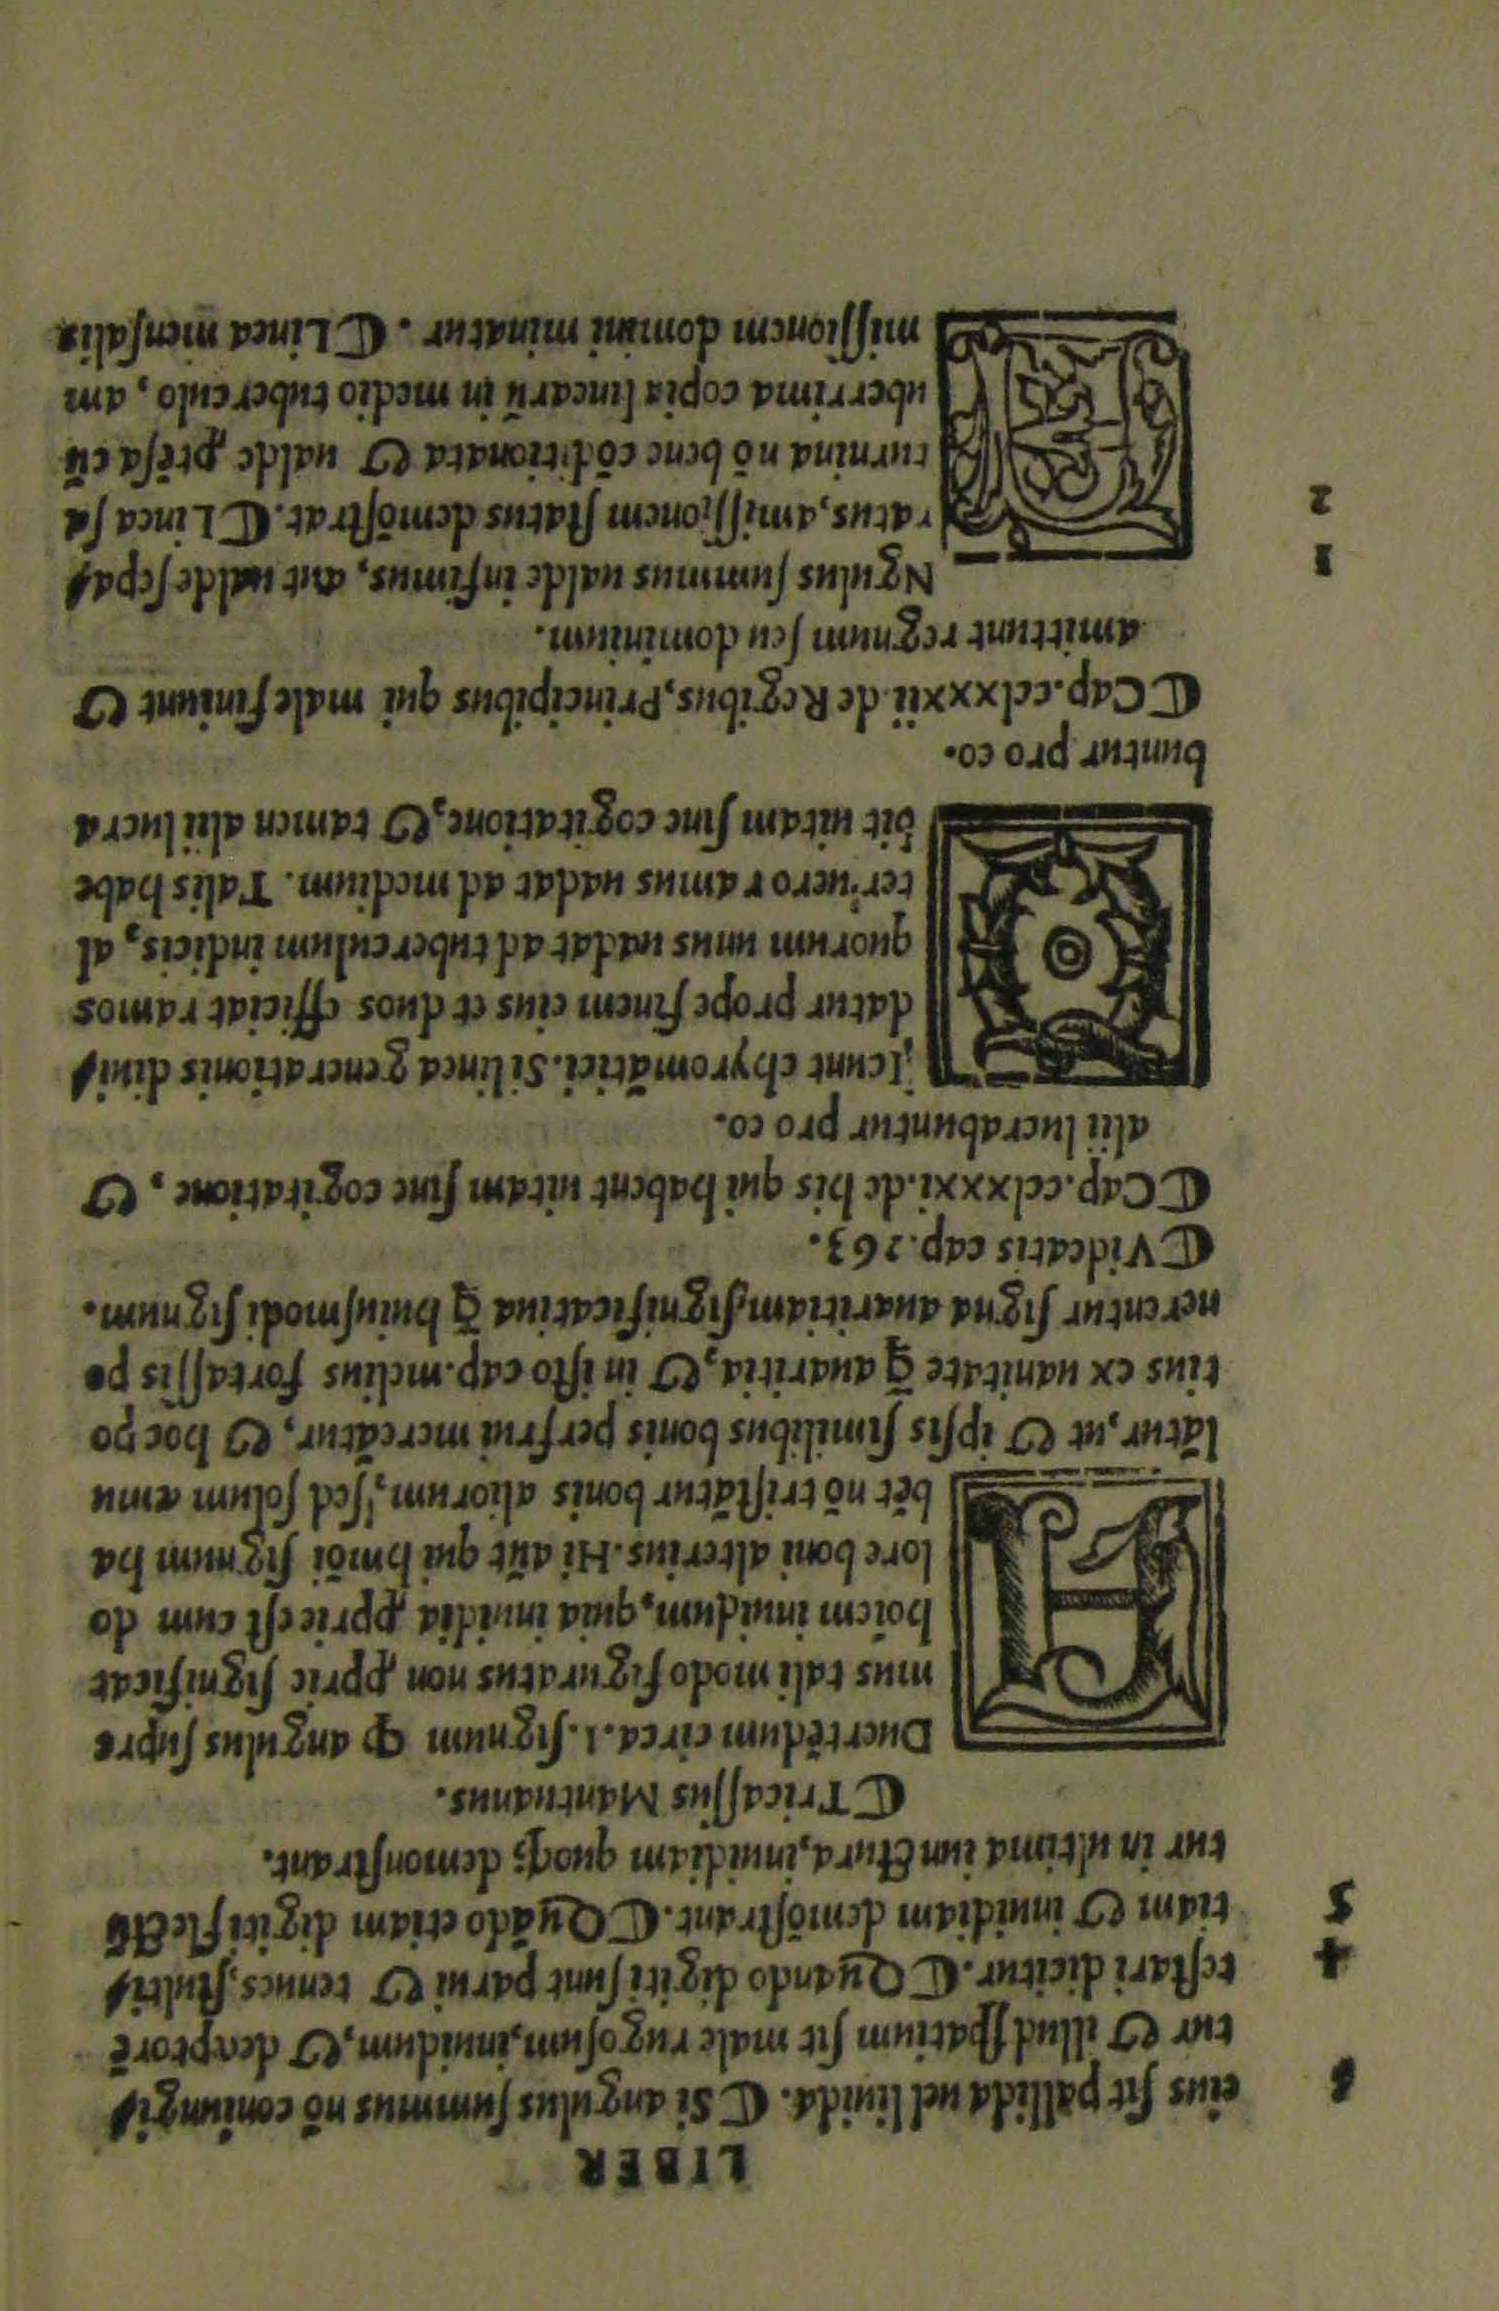 LIBER
eius sit pallida uel liuida. ℂ Si angulus summus nō coniungi⸗
tur & illud spatium sit male rugosum, inuidum, & deceptorē
testari dicitur. ℂ Quando digiti sunt parui & tenues, stulti⸗
tiam & inuidiam demōstrant. ℂ Quādo etiam digiti flectū
tur in ultima iunctura, inuidiam quoqꝫ demonstrant.
4
5
ℂ Tricassus Mantuanus.
H Duertēdum circa .1. signum ꝙ angulus supre
mus tali modo figuratus non ꝓprie significat
hoīem inuidum, quia inuidia ꝓprie est cum do
lore boni alterius. Hi aūt qui hmōi signum ha
bēt nō tristātur bonis aliorum, sed solum æmu
lātur, ut & ipsis similibus bonis perfrui mereātur, & hoc po
tius ex uanitate q̄ auaritia, & in isto cap. melius fortassis po
nerentur signa auaritiam significatiua q̄ huiusmodi signum.
ℂ Videatis cap. 263.
ℂ Cap. cclxxxi. de his qui habent uitam sine cogitatione, &
alii lucrabuntur pro eo.
D Icunt chyromātici. Si linea generationis diui⸗
datur prope finem eius et duos efficiat ramos
quorum unus uadat ad tuberculum indicis, al
ter uero ramus uadat ad medium. Talis habe
bit uitam sine cogitatione, & tamen alii lucra
buntur pro eo.
ℂ Cap. cclxxxii. de Regibus, Principibus qui male finiunt &
amittunt regnum seu dominium.
Ngulus summus ualde infimus, aut ualde sepa⸗
ratus, amissionem status demōstrat. ℂ Linea sa
turnina nō bene cōditionata & ualde grossa cū
uberrima copia linearū in medio tuberculo, am
missionem domini minatur. ℂ Linea mensalis
1
2